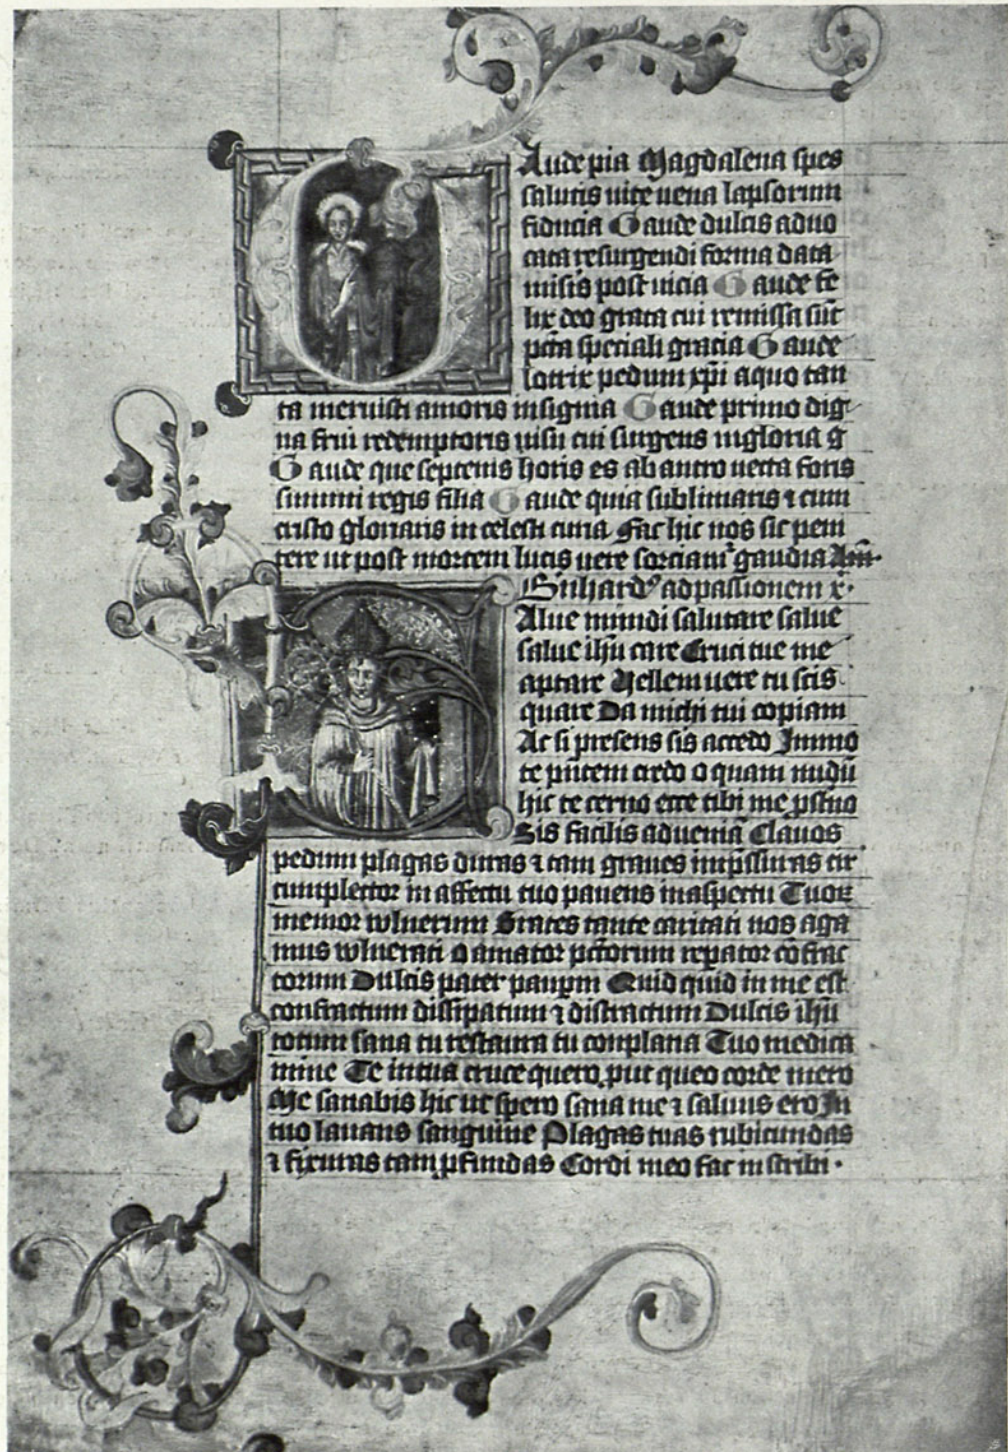 Aude pia Magdalena spes
salutis uite uena lapsorum
fiducia Gaude dulcis aduo
cata resurgendi forma data
misis post uicia Gaude fe
lix deo grata cui remissa sūt
pctā speciali gracia Gaude
lotrix pedum xpi a quo tan
ta meruisti amoris insignia Gaude primo dig
na frui redemptoris uisu cui surgens in gloria
Gaude que septenis horis es ab antro uecta foris
summi regis filia Gaude quia sublimaris ⁊ cum
cristo gloriaris in celesti curia Fac hic nos sic peni
tere ut post mortem lucis uere sorciamᷣ gaudia Am̄
ad passionem x
Alue mundi salutare salue
salue ihū care Cruci tue me
aptare Uellem uere tu scis
quare Da michi tui copiam
Ac si presens sis accedo Immo
te pntem credo o quam nudū
hic te cerno ecce tibi me pstno
Sis facilis ad ueniā Clauos
pedum plagas duras ⁊ tam graues impssuras cir
cumplector in affectu tuo pauens in aspectu Tuoꝝ
memor wlnerum Grates tante caritati nos aga
mus wlnerati o amator pctorum repator cōfrac
torum Dulcis pater paupm Quid quid in me est
confractum dissipatum ⁊ distractum Dulcis ihū
totum sana tu restaura tu conplana Tuo medica
mine Te in tua cruce quero put queo corde mero
Me sanabis hic ut spero sana me ⁊ saluus ero In
tuo lauans sanguine Plagas tuas rubicundas
⁊ fixuras tam pfundas Cordi meo fac in scribi